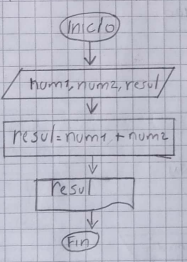 Inicio
num1, num2, resul
resul=num1 + num2
resul
Fin